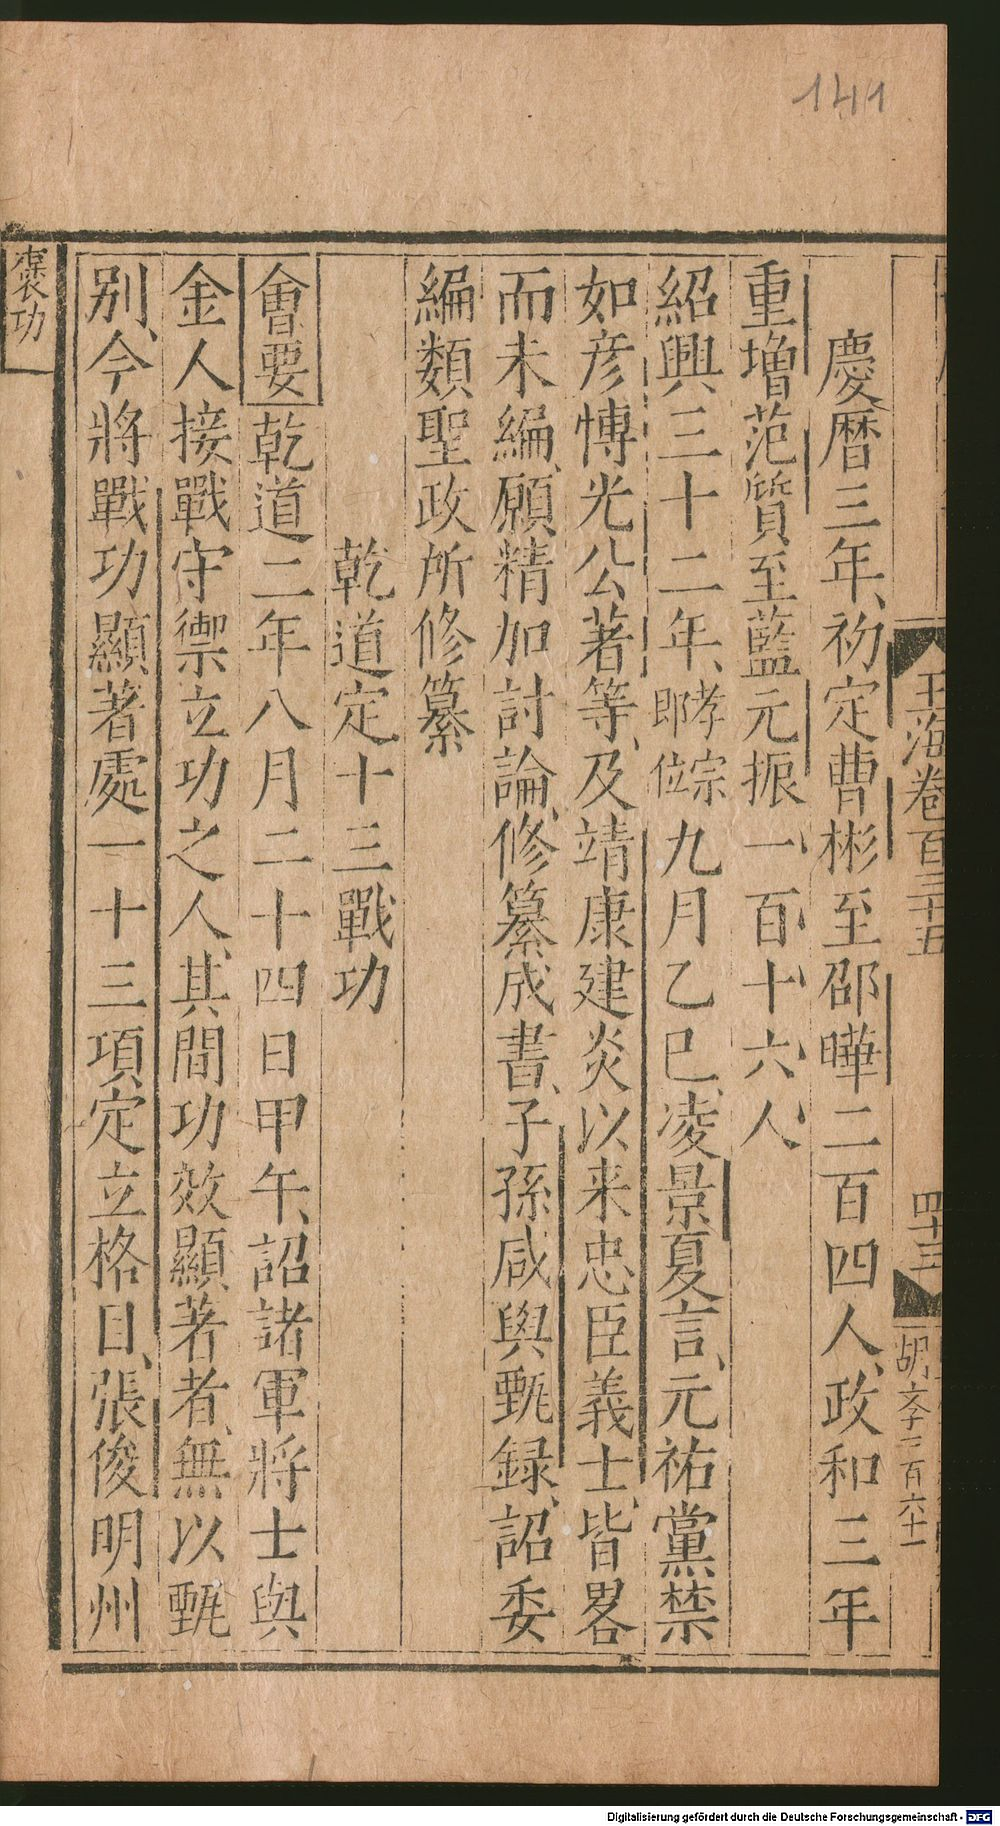 141
玉海卷百三十五
四十三
胡文孛一百六十一
慶曆三年、初定曹彬至邵曄二百四人、政和三年
重增范質至藍元振一百十六人、
紹興三十二年、孝宗即位九月乙巳、凌景夏言、元祐黨禁
如彥博光公著等、及靖康建炎以来忠臣義士、皆畧
而未編、願精加討論、修纂成書、子孫咸與甄録、詔委
編類聖政所修纂
乾道定十三戰功
會要乾道二年八月二十四日甲午、詔諸軍將士與
金人接戰守禦立功之人、其間功效顯著者、無以甄
别、今將戰功顯著處一十三項定立格目、張俊明州
褒功
Digitalisierung gefördert durch die Deutsche Forschungsgemeinschaft - DFG